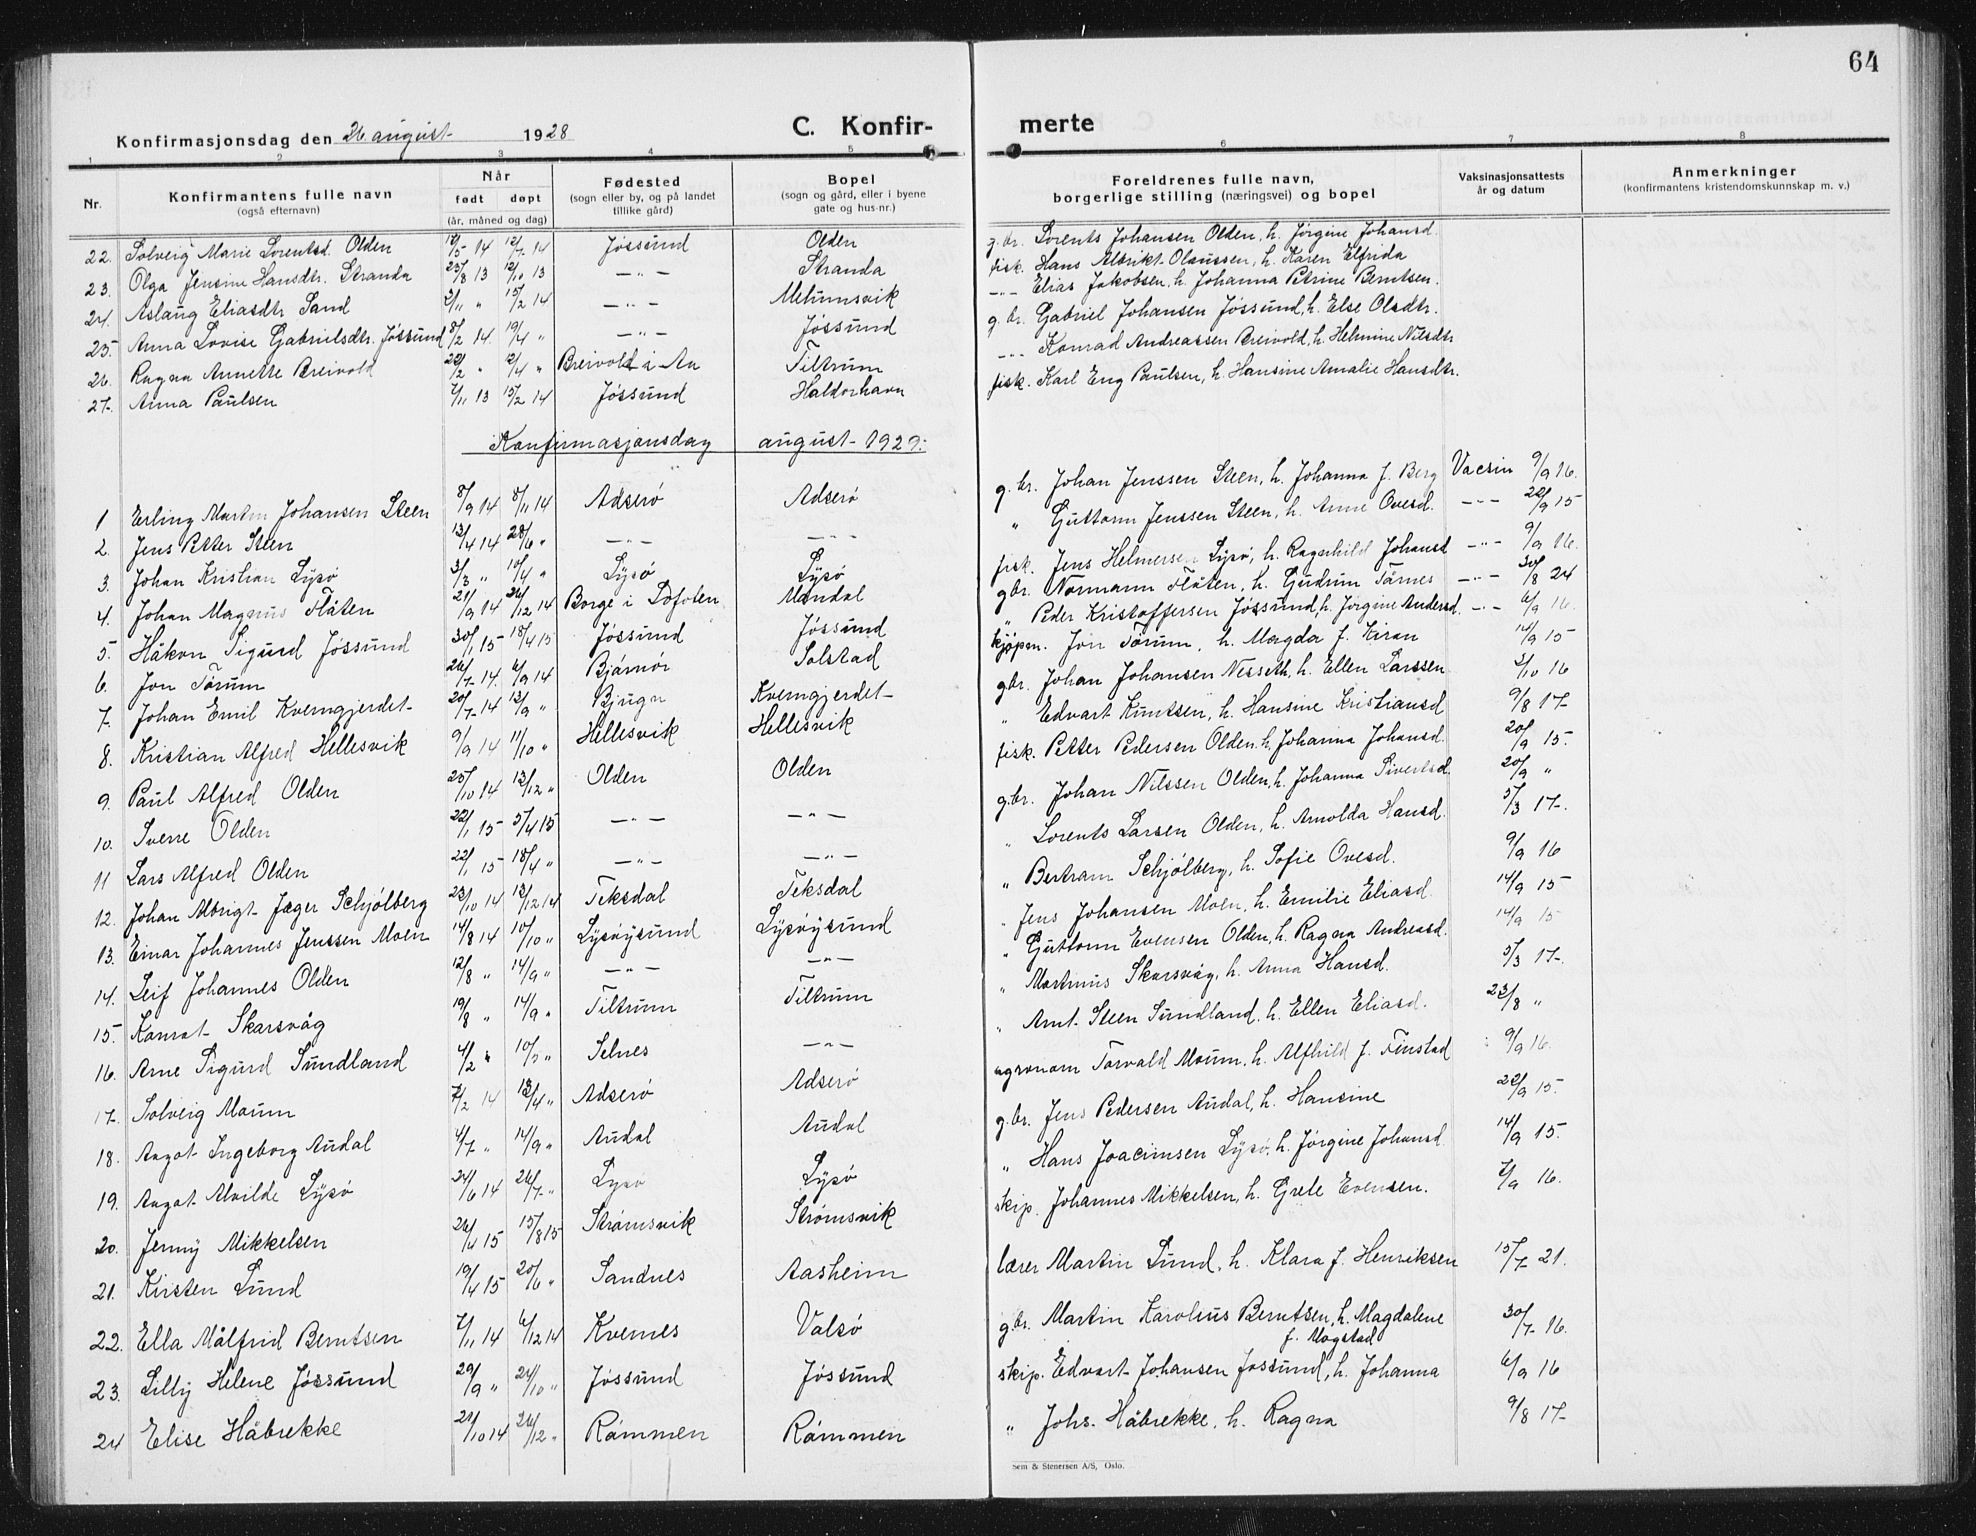 64
Konfirmasjonsdag den 26 august 1928 C. Konfir- merte
1 2 3 4 5 6 7 8
Nr. Konfirmantens fulle navn (også efternavn) Når født døpt (år, måned og dag) Fødested (sogn eller by, og på landet tillike gård) Bopel (sogn og gård, eller i byene gate og hus-nr.) Foreldrenes fulle navn, borgerlige stilling (næringsvei) og bopel Vaksinasjonsattests år og datum Anmerkninger (konfirmantens kristendomskunnskap m. v.)
22. Solveig Marie Lorentsd. Olden 12/5 14 12/7 14 Jøssund Olden g.br. Lorents Johansen Olden, h. Jørgine Johansd.
23. Olga Jensine Hansdtr. Stranda 25/8 13 12/10 13 —"— Stranda fisk. Hans Albrikt Olaussen, h. Karen Elfrida
24. Aslaug Eliasdtr Sand 2/11 " 15/2 14 —"— Melumsvik —"— Elias Jakobsen, h. Johanna Petrine Berntsen.
25. Anna Lovise Gabrielsdtr. Jøssund 8/2 14. 19/4 " —"— Jøssund g.br. Gabriel Johansen Jøssund, h. Else Olsdtr.
26. Ragna Annette Breivold 22/2 " 12/4 " Breivold i Aa Tiltrum —"— Konrad Andreassen Breivold, h. Helmine Nilsdtr
27. Anna Paulsen 7/11 13 15/2 14 Jøssund Haldorhavn fisk. Karl Eng Paulsen, h. Hansine Amalie Hansdtr.
Konfirmasjonsdag august 1929.
1 Erling Martin Johansen Steen 8/9 14 8/11 14 Adserø Adserø g.br. Johan Jenssen Steen, h. Johanna f. Berg Vacsin 9/9 16.
2. Jens Petter Steen 13/4 14 28/6 " —"— —"— " Guttorm Jenssen Steen, h. Anne Ovesd. —"— 22/9 15
3. Johan Kristian Lysø 3/3 " 10/4 " Lysø Lysø fisk. Jens Helmersen Lysø, h. Ragnhild Johansd —"— 9/9 16.
4. Johan Magnus Flåten 21/9 14 26/12 14 Borge i Lofoten Mandal gbr. Normann Flåten, h. Gudrun Tårnes —"— 30/8 24
5. Håkon Sigurd Jøssund 30/1 15 18/4 15 Jøssund Jøssund " Peder Kristoffersen Jøssund, h. Jørgine Andersd. —"— 6/9 16.
6. Jon Tårum 26/7 14. 6/9 14 Bjårnør Solstad kjøpm. Jon Tårum, h. Magda f. Kiran 14/9 15
7. Johan Emil Kverngjerdet 20/7 14 13/9 " Bjugn Kverngjerdet gbr. Johan Johansen Nesseth, h. Ellen Larssen 2/10 16
8. Kristian Alfred Hellesvik 9/9 14 11/10 " Hellesvik Hellesvik " Edvart Knutsen, h. Hansine Kristiansd 9/8 17
9. Paul Alfred Olden 25/10 14 13/12 " Olden Olden fisk. Petter Pedersen Olden, h. Johanna Johansd. 20/9 15.
10. Sverre Olden 22/1 15 5/4 15 —"— —"— g.br. Johan Nilssen Olden, h. Johanna Sivertsd. 20/9 "
11 Lars Alfred Olden 22/1 15 18/4 " —"— —"— " Lorents Larsen Olden, h. Arnolda Hansd. 5/3 17.
12. Johan Albrigt Jæger Schjølberg 23/10 14 13/12 14 Teksdal Teksdal " Bertram Schjølberg, h. Sofie Ovesd. 9/9 16
13. Einar Johannes Jenssen Moen 14/8 14 10/10 " Lysøysund Lysøysund " Jens Johansen Moen, h. Emilie Eliasd. 14/9 15
14. Leif Johannes Olden 12/8 " 14/9 " —"— —"— " Guttorm Evensen Olden, h. Ragna Andreasd. 14/9 15
15. Konrat Skarsvåg 19/8 " 14/9 " Tiltrum Tiltrum " Martinus Skarsvåg, h. Anna Hansd. 5/3 17.
16. Arne Sigurd Sundland 4/2 " 10/ " Selnes —"— " Arnt Steen Sundland, h. Ellen Eliasd. 23/8 "
17. Solveig Moum 7/2 14 13/4 " Adserø Adserø agronom Torvald Moum, h. Alfhild f. Finstad 9/9 16.
18. Aagot Ingeborg Audal 4/7 " 14/9 " Audal Audal g.br. Jens Pedersen Audal, h. Hansine 22/9 15.
19. Aagot Alvilde Lysø 24/6 14 26/7 " Lysø Lysø " Hans Joacimsen Lysø, h. Jørgine Johansd. 14/9 15.
20. Jenny Mikkelsen 26/4 15 15/8 15 Strømsvik Strømsvik skip. Johannes Mikkelsen, h. Grete Evensen. 7/9 16.
21. Kirsten Lund 19/4 15 20/6 " Sandnes Aasheim lærer Martin Lund, h. Klara f. Henriksen 15/7 21.
22. Ella Målfrid Berntsen 7/11 14 6/12 14 Kvernes Valsø g.br. Martin Karolius Berntsen, h. Magdalene f. Mogstad 30/7 16.
23. Lilly Helene Jøssund 29/9 " 24/10 " Jøssund Jøssund skip. Edvart Johansen Jøssund, h. Johanna 6/9 16
24 Elise Håbrekke 21/10 14 26/12 " Råmmen Råmmen " Johs. Håbrekke, h. Ragna 9/8 17
Sem & Stenersen A/S, Oslo.